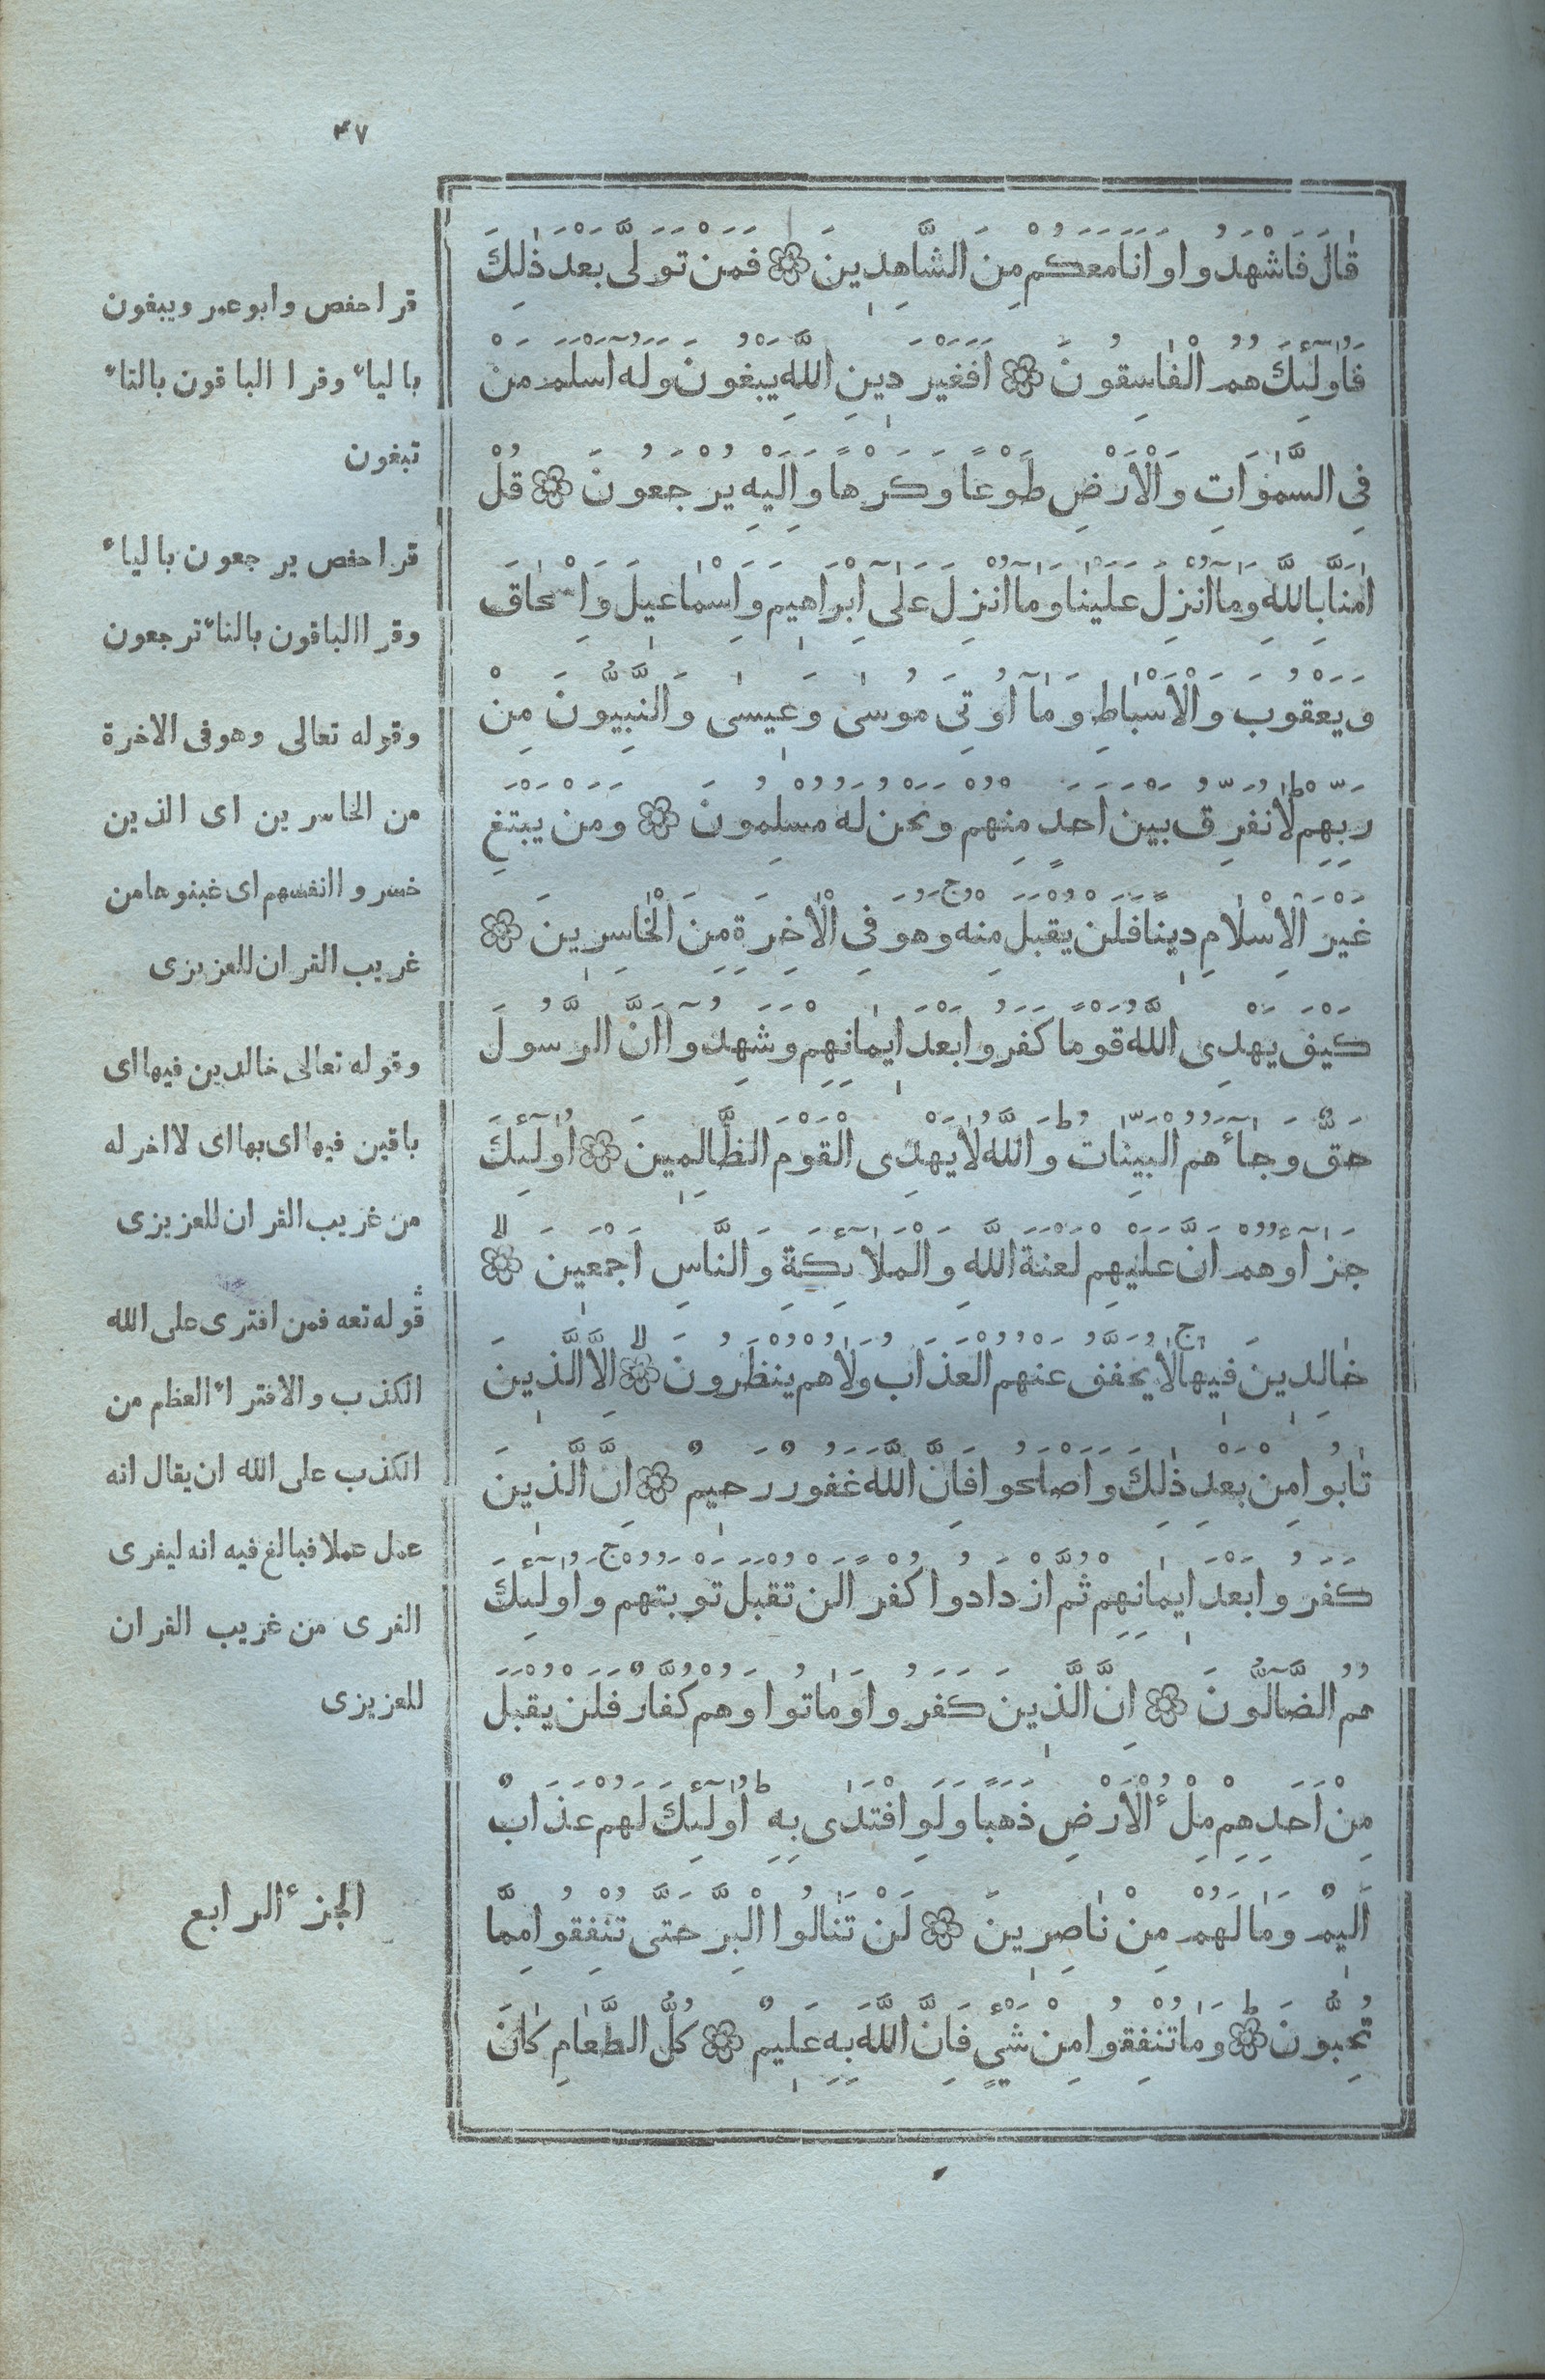 ٤٧
قٰالَ فَاشْهَدُوا وَاَنَا مَعَكُمْ مِنَ الشَّاهِدِينَ فَمَنْ تَوَلّٰى بَعْدَ ذٰلِكَ
فَاُولٰٓئِكَ هُمُ الْفٰاسِقُونَ اَفَغَيْرَ دِينِ اللَّهِ يَبْغُونَ وَلَهُٓ اَسْلَمَ مَنْ
فِى السَّمٰوَاتِ وَالْاَرْضِ طَوْعًا وَكَرْهًا وَاِلَيْهِ يُرْجَعُونَ قُلْ
اٰمَنَّا بِاللَّهِ وَمَٓا اُنْزِلَ عَلَيْنٰا وَمَٓا اُنْزِلَ عَلٰٓى اِبْرَاهِيمَ وَاِسْمٰاعِيلَ وَاِسْحٰاقَ
وَيَعْقُوبَ وَالْاَسْبٰاطِ وَمٰٓا اُوتِىَ مُوسٰى وَعِيسٰى وَالنَّبِيُّونَ مِنْ
رَبِّهِمْ ط لٰا نُفَرِّقُ بَيْنَ اَحَدٍ مِنْهُمْ وَنَحْنُ لَهُ مُسْلِمُونَ وَمَنْ يَبْتَغِ
غَيْرَ الْاِسْلٰامِ دِينًا فَلَنْ يُقْبَلَ مِنْهُ ج وَهُوَ فِى الْاٰخِرَةِ مِنَ الْخٰاسِرِينَ
كَيْفَ يَهْدِى اللَّهُ قَوْمًا كَفَرُوا بَعْدَ اِيمٰانِهِمْ وَشَهِدُٓوا اَنَّ الرَّسُولَ
حَقٌّ وَجَٓاءَهُمُ الْبَيِّنَاتُ ط وَاللَّهُ لٰا يَهْدِى الْقَوْمَ الظَّالِمِينَ اُولٰٓئِكَ
جَزَٓاؤُهُمْ اَنَّ عَلَيْهِمْ لَعْنَةَ اللَّهِ وَالْمَلٰٓائِكَةِ وَالنَّاسِ اَجْمَعِينَ لا
خٰالِدِينَ فِيهٰا ج لٰا يُخَفَّفُ عَنْهُمُ الْعَذَابُ وَلٰا هُمْ يُنْظَرُونَ لا اِلَّا الَّذِينَ
تٰابُوا مِنْ بَعْدِ ذٰلِكَ وَاَصْلَحُوا فَاِنَّ اللَّهَ غَفُورٌ رَحِيمٌ اِنَّ الَّذِينَ
كَفَرُوا بَعْدَ اِيمٰانِهِمْ ثُمَّ ازْدَادُوا كُفْرًا لَنْ تُقْبَلَ تَوْبَتُهُمْ ج وَاُولٰٓئِكَ
هُمُ الضَّٓالُّونَ اِنَّ الَّذِينَ كَفَرُوا وَمٰاتُوا وَهُمْ كُفَّارٌ فَلَنْ يُقْبَلَ
مِنْ اَحَدِهِمْ مِلْءُ الْاَرْضِ ذَهَبًا وَلَوِ افْتَدٰى بِهِ ط اُولٰٓئِكَ لَهُمْ عَذَابٌ
اَلِيمٌ وَمٰا لَهُمْ مِنْ نٰاصِرِينَ لَنْ تَنٰالُوا الْبِرَّ حَتَّى تُنْفِقُوا مِمَّا
تُحِبُّونَ ط وَمٰا تُنْفِقُوا مِنْ شَيْءٍ فَاِنَّ اللَّهَ بِهِ عَلِيمٌ كُلُّ الطَّعٰامِ كٰانَ
قرا حفص وابو عمر ويبغون
بالياء وقرا الباقون بالتاء
تبغون
قرا حفص يرجعون بالياء
وقرا الباقون بالتاء ترجعون
وقوله تعالى وهو فى الاخرة
من الخاسرين اى الذين
خسروا انفسهم اى غبنوها من
غريب القران للعزيزى
وقوله تعالى خالدين فيها اى
باقين فيها اى بها اى لا اخر له
من غريب القران للعزيزى
قوله تعه فمن افترى على الله
الكذب والافتراء العظم من
الكذب على الله ان يقال انه
عمل عملا فبالغ فيه انه ليفرى
الفرى من غريب القران
للعزيزى
الجزء الرابع